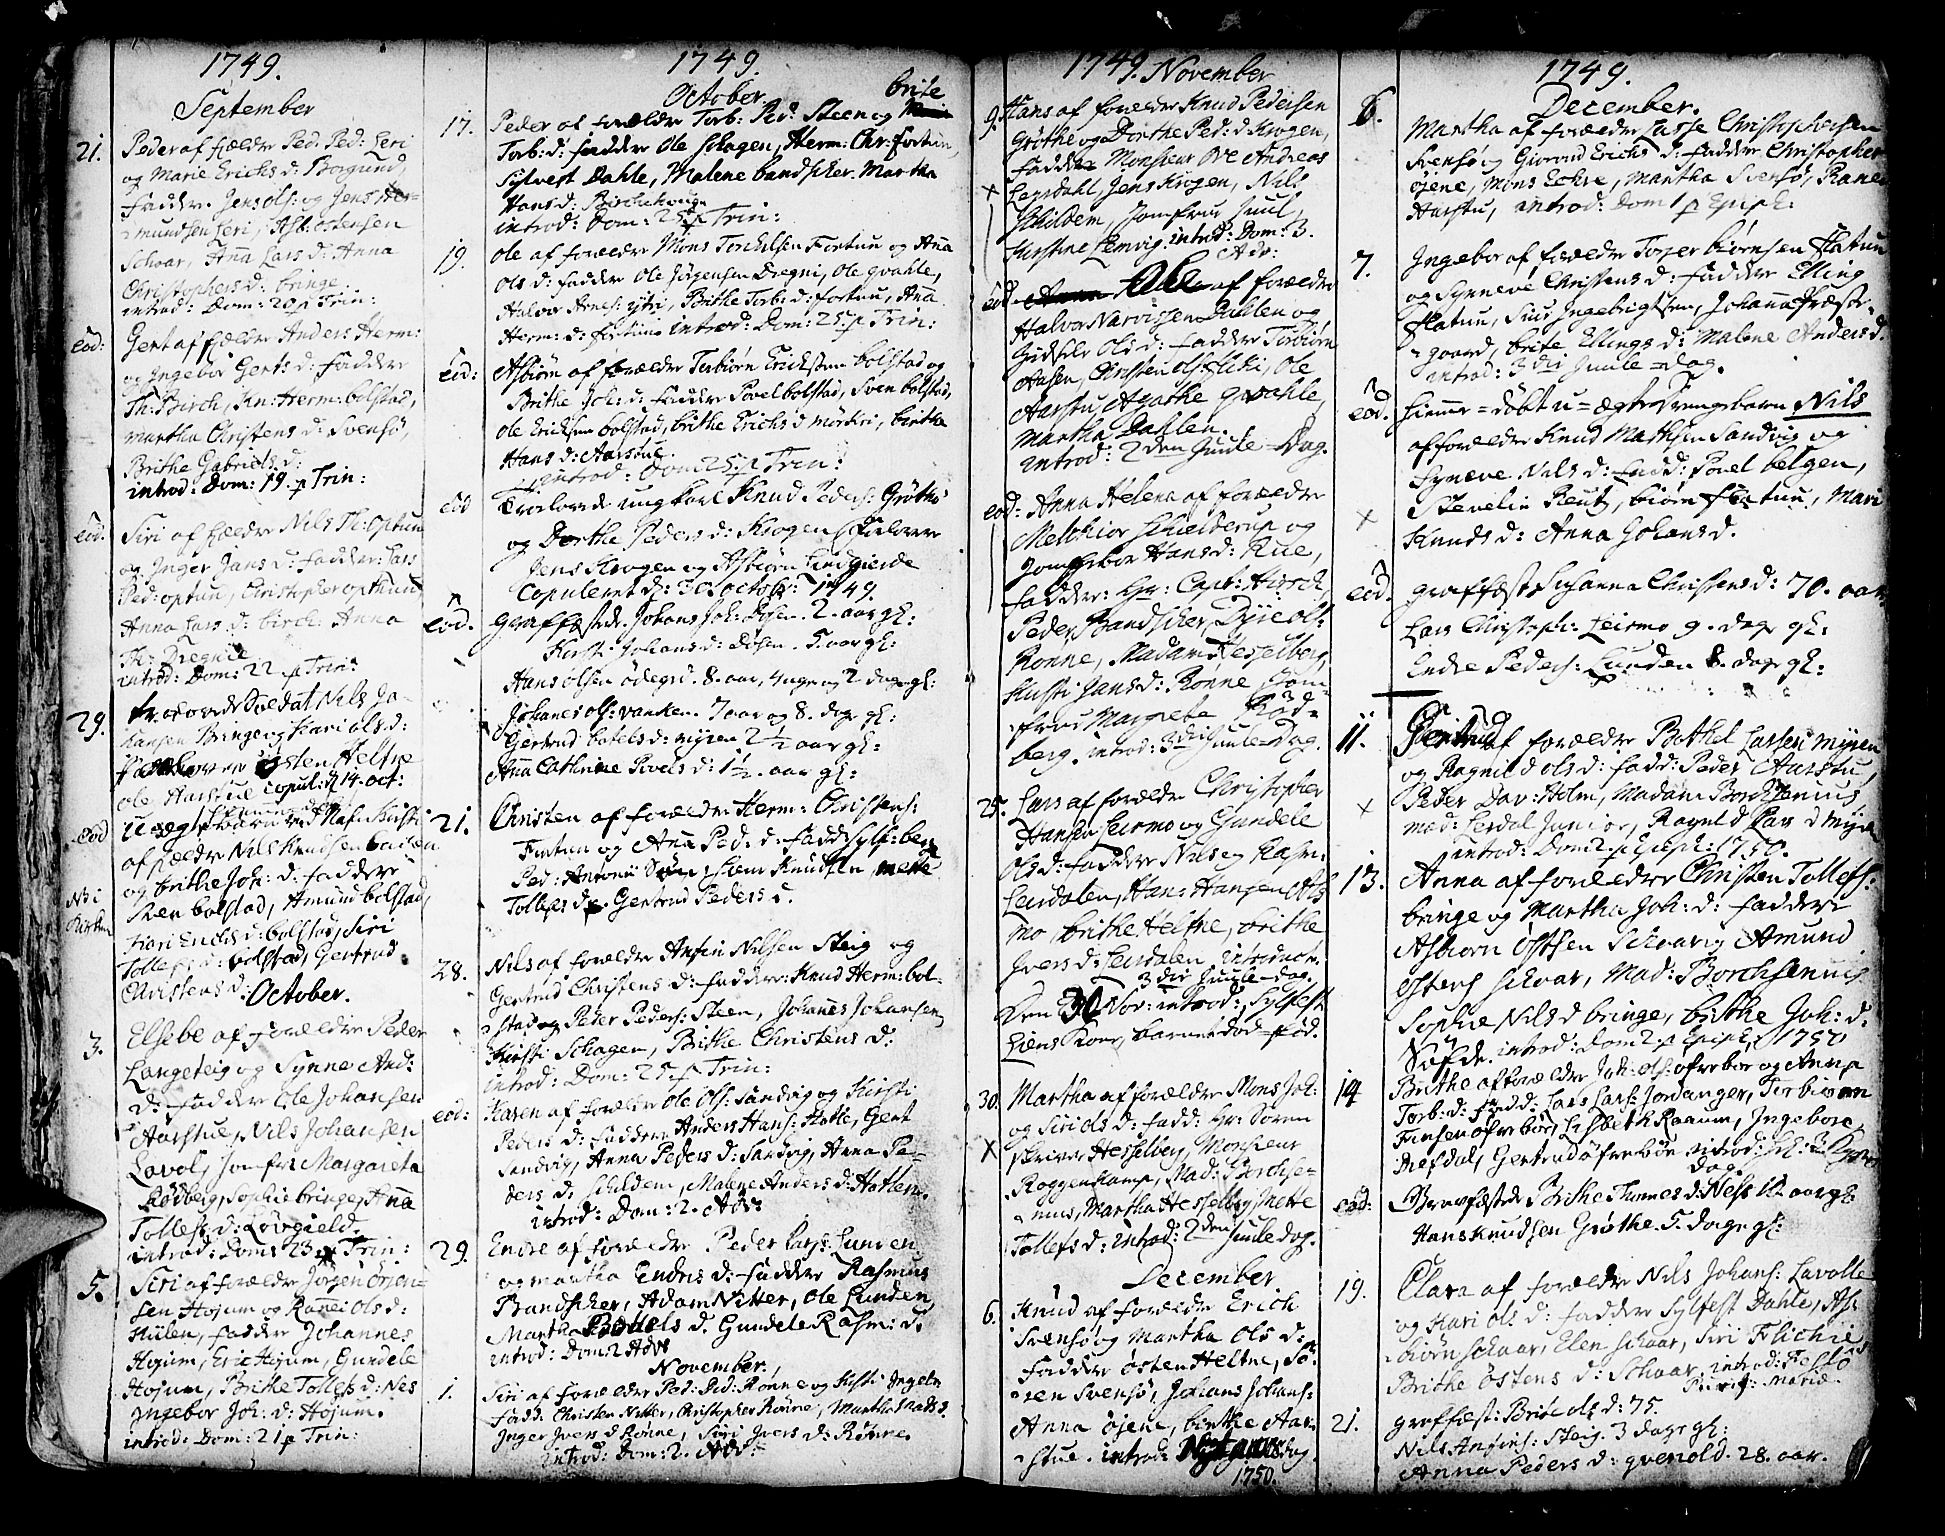 1749.
September
21. Peder af fældre Ped: Ped: Leri
og Marie Erichs d: Borgund,
Faddr. Jens ols: og Jens Her-
mundsen Leri, Asb: østensen
Schaar, Aña Lars d: Anna
Christophers d: bringe.
introd: Dom: 20 p Trin:
eod: Gert af fældre Anders Herm:
og Ingebor Gerts d: Faddere
Th: Birch, Kn: Herm: bolstad,
Martha Christens d: Svensø,
Brithe Gabriels d:
introd: Dom: 19. p Trin:
eod. Siri af fældre Nils Th: Optun
og Inger Jans d: Fadder: Lars
Ped: optun, Christopher opthun
Anna Lars d: birch: Anna
Th: Dregnie
introd: Dom: 22 p Trin:
29. Trolovede Soldat Nils Jo-
hansen Bringe og Kari ols d:
østen Heltne
ole Aarstue copul: d 14. oct:
eod
af fældre Nils Knudsen
og brithe Joh: d: faddere
Sven bolstad, Amund bolstad,
Kari Erichs d: bolstad, Siri
Tollefs d: bolstad, Gertrud
Christens d:
October.
3. Elsebe af forældre Peder
Langeteig og Synne And:
d: Fadder Ole Johansen
Aarstue, Nils Johansen
Lavol, Jomfru Margareta
Rødberg, Sophie bringe, Aña
Tollefs d: Løvgield.
introd: Dom: 23 p Trin:
5. Siri af forældre Jørgen Ørjen-
sen Hojum og Rañei Ols d:
Hülen, Faddr Johannes
Hojum, Eric Hojum, Gundele
Hojum, Brithe Tollefs d: Nes
Ingebor Joh: d: Hojum.
introd: Dom: 21 p Trin:
1749.
October. brite
17. Peder af forældre Torb: Pe: Steen og
Torb: d: faddere Ole Schagen, Herm: Chr: Fortun,
Sylvest Dahle, Malene bandscher. Martha
Hans d: Birchehoug
introd: Dom: 25 p Trin:
19. Ole af forældre Mons Torchelsen Fortun og Aña
Ols d: Faddere Ole Jørgensen Dregni, Ole qvahle,
Halvor Arnes: ijtri, Brithe Torb: d: fortun, Aña
Herm: d: fortun introd: Dom: 25 p Trin:
eod: Asbiørn af forældre Torbiørn Ericksen bolstad og
Brithe Joh: d: Faddere Povel bolstad, Sven bolstad,
Ole Ericksen bolstad, brithe Erichs d mørkri, birthe
Hans d: Aarstue.
introd: Dom 25 p Trin:
eod Trolovede ungkarl Knud Peders: Grøthe
og Dorthe Peders d: Krogen
Jens Krogen og Asbiørn Lindgierde
Copuleret d: 30 octobr: 1749.
eod. Graffæstede. Johans Joh: Døsen. 2. aar gl:
Kirsti Johans d: Døsen. 5. aar gl:
Hans Olsen ødegrd. 8. aar, 4 uger og 2 dage gl:
Johanes ols: vanken. 7 aar og 8. dage gl:
Gertrud botels d: mijren 2½ aar gl:
Aña Cathrine Povels d: 1½ . aar gl:
21. Christen af forældre Herm: Christens:
Fortun og Aña Ped: d: Fadd Sylf: ber
Ped: Antonii Knudsen, mette
Tollefs d, Gertrud Peders d.
28. Nils af forældre Anfin Nilsen Steig og
Gertrud Christens d: Fadder: Knud Herm: bol-
stad og Peter Peders: Steen, Johanes Johansen
Kirsti Schagen, Brithe Christens d:
introd: Dom: 25 p Trin:
eod: Karen af forældre Ole Ols: Sandvig og Kirsti
Peders d: Faddere Anders Hans: Hatle, Gert
Sandvig, Anna Peders d: Sandvig, Anna Pe-
ders d: Schildem, Malene Anders d: Hatlen.
introd: Dom: 2. Adv:
29. Endre af forældre Peder Lars: Lunden
og martha Endres d: Faddere Rasmus
Brandscher, Adam Nitter, Ole Lunden,
Martha Botels d. Gundele Rasm: d:
introd: Dom: 2 Adv:
November.
1. Siri af forældre Ped: Ped: Rønne og Kisti Ingebr
Fadd: Christen Nitter, Christopher Rønne, Martha Mads d.
Inger Ivers d Rønne, Siri Ivers d: Rønne.
introd: Dom: 2. Adv:
1749. November
9. Hans af forældre Knud Pedersen
Grøthe og Dorthe Ped: d Krogen,
Faddere Monsieur Ove Andreas
Leegdahl, Jens Krogen, Nils
Schildem, Jomfrue Juul,
Kirstine Lemvig. introd: Dom: 3.
Adv:
eod. Ole af forældre
Halvor Narvissen Dahlen og
Gidsele Ols d: Faddere Torbiørn
Aasen, Christen ols: Fliki, Ole
Aarstu, Agathe qvahle,
Martha Dahlen.
introd: 2 den Juule-Dag.
eod: Anna Helena af forældre
Melchior Schielderup og
Jomf: Hans d: Rue,
Faddere: Hr: Capt: Hirsch,
Peder Brandscher, Ole ols:
Rønne, Madam Hesselberg,
Kirsti Jans d: Rønne, Jom-
frue Margrete Rød-
berg. introd: 3 die Juule-Dag.
25. Lars af forældre Christopher
Hansen Leirmo og Gundele
Ols d: Faddere Nils og Rasm:
Leirdalen, Han: Hansen
mo, brithe Heltne, brithe
Ivers d: Leirdalen introduceret
3 die Juule-dag.
Den 30 Nov: introd: Sylfest
Liens Kone, barnet død-fød.
30. Martha af forældre Mons Joh:
og Siri ols d: Fadd: Hr: Søren
skriver Hesselberg, Monsieur
Roggenkamp, Mad: Borchse-
nius, Martha Hesselberg, Mette
Tollefs d: introd: 2 den Juule dag.
December
6. Knud af forældre Erich
Svensø og Martha Ols d:
Faddere østen Heltne, Sø-
ren Svensø, Johans Johans:
Anna øjene, birthe Aar-
stue. introd: Nytaarsdag
1750.
1749.
December.
6. Martha af forældre Lasse Christophersen
Svensø og Giørond Erichs d: Faddere Christopher
øjene, Mons Eikre, Martha Svensø, Ranei
Aarstu, introd: Dom 1 p Epiph:
7. Ingebor af forældre Torger biørnsen Flatun
og Synneve Christens d: Faddere Elling
Flatun, Siur Ingebrigtsen, Johaña Præste-
gaard, brite Ellings d: Malene Anders d:
introd: 3 die Juule-dag.
eod. Hiemme-døbt u-ægte Drengebarn Nils
af forældre Knud Mathisen Sandvig og
Synneve Nils d: Fadd: Povel bølgen,
Stevelin Reutz, biørn Flatun, Mari
Knuds d: Anna Johans d.
eod. Graffæst, Susanna Christens d: 70. aar.
Lars Christoph: Leirmo 9. dage gl:
Endre Peders: Lunden 8. dage gl:
11. Gertrud af forældre Bothel Larsen Mijren
og Ragnild ols d: Fadd: Peder Aarstu,
Peder Dav: Holm, Madam Borchsenius
Mad: Lerdal Junior, Ragnild Lars d Mijr
introd: Dom 2 p Epiph: 1750.
13. Anna af forældre Christen Tollefs:
bringe og Martha Joh: d: Faddere
Asbiorn Østensen Schaar, Amund
Ostens Schaar, Mad: Borchsenius
Sophie Nils d bringe, brithe Joh: d:
introd: Dom 2 p Epiph, 1750
14 Brithe af forældre Joh: ols: ofrebor og Anna
Torb: d: Fadd: Lars Lars: Jordanger, Torbiorn
Finsen ofrebør, Lisbeth Raaum, Ingebor
Drefdal, Gertrud ofrebør introd: hl: 3 Kong:
Dag.
eod: Gravfæstede Brithe Tommes d: Ness 10 aar gl:
Hans Knudsen Grøthe. 5. dage gl:
19. Clara af forældre Nils Johans: Lavolle
og Kari ols d: Faddere Sylfest Dahle, As-
biørn Schaar, Elen Schaar, Siri Flichie
Brithe Østens d: Schaar. introd: Festo
Purif: Mariæ.
21. graffæst: Brite ols d: 75.
Nils Anfins: Steig. 3 dage gl:
Anna Peders d: qvenold. 28. aar.